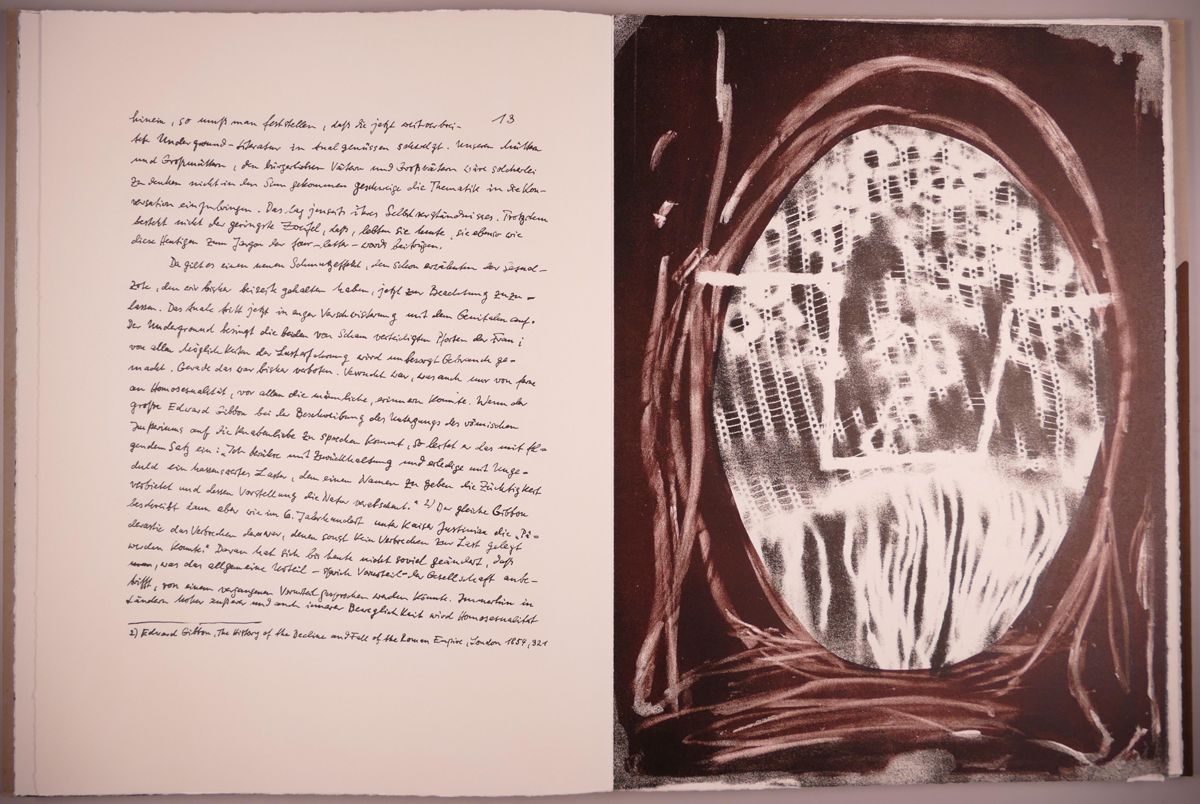 13
hinein, so muß man feststellen, daß die jetzt weitverbrei-
tete Underground-Literatur in Analgenüssen schwelgt. Unseren Müttern
und Großmüttern, den bürgerlichen Vätern und Großvätern wäre solcherlei
zu denken nicht in den Sinn gekommen geschweige die Thematik in die Kon-
versation einzubringen. Das lag jenseits ihres Selbstverständnisses. Trotzdem
besteht nicht der geringste Zweifel, daß, lebten sie heute, sie ebenso wie
diese Heutigen zum Jargon der four-letter-words beitrügen.
Da gilt es einen neuen Schmutzeffekt, den schon erwähnten der
Zote, den wir bisher beiseite gehalten haben, jetzt zur Beachtung zuzu-
lassen. Das Anale tritt jetzt in enger Verschwisterung mit dem Genitalen auf.
Der Underground besingt die beiden von Scham verteidigten Pforten der Frau;
von allen Möglichkeiten der Lusterfahrung wird unbesorgt Gebrauch ge-
macht. Gerade das war bisher verboten. Verrucht war, was auch nur von ferne
an Homosexualität, vor allem die männliche, erinnern konnte. Wenn der
große Edward Gibbon bei der Beschreibung des Untergangs des römischen
Imperiums auf die Knabenliebe zu sprechen kommt, so leitet er das mit fol-
gendem Satz ein: "Ich berühre mit Zurückhaltung und erledige mit Unge-
duld ein hassenswertes Laster, dem einen Namen zu geben die Züchtigkeit
verbietet und dessen Vorstellung die Natur verabscheut." 2) Der gleiche Gibbon
beschreibt dann aber wie im 6. Jahrhundert unter Kaiser Justinian die „Pä-
derastie das Verbrechen derer war, denen sonst kein Verbrechen zur Last gelegt
werden konnte." Daran hat sich bis heute nicht soviel geändert, daß
man, was das allgemeine Urteil – sprich Vorurteil – der Gesellschaft anbe-
trifft, von einem vergangenen Vorurteil gesprochen werden könnte. Immerhin in
Ländern hoher äußerer und auch innerer Beweglichkeit wird Homosexualität
2) Edward Gibbon, The History of the Decline and Fall of the Roman Empire, London 1854, 321